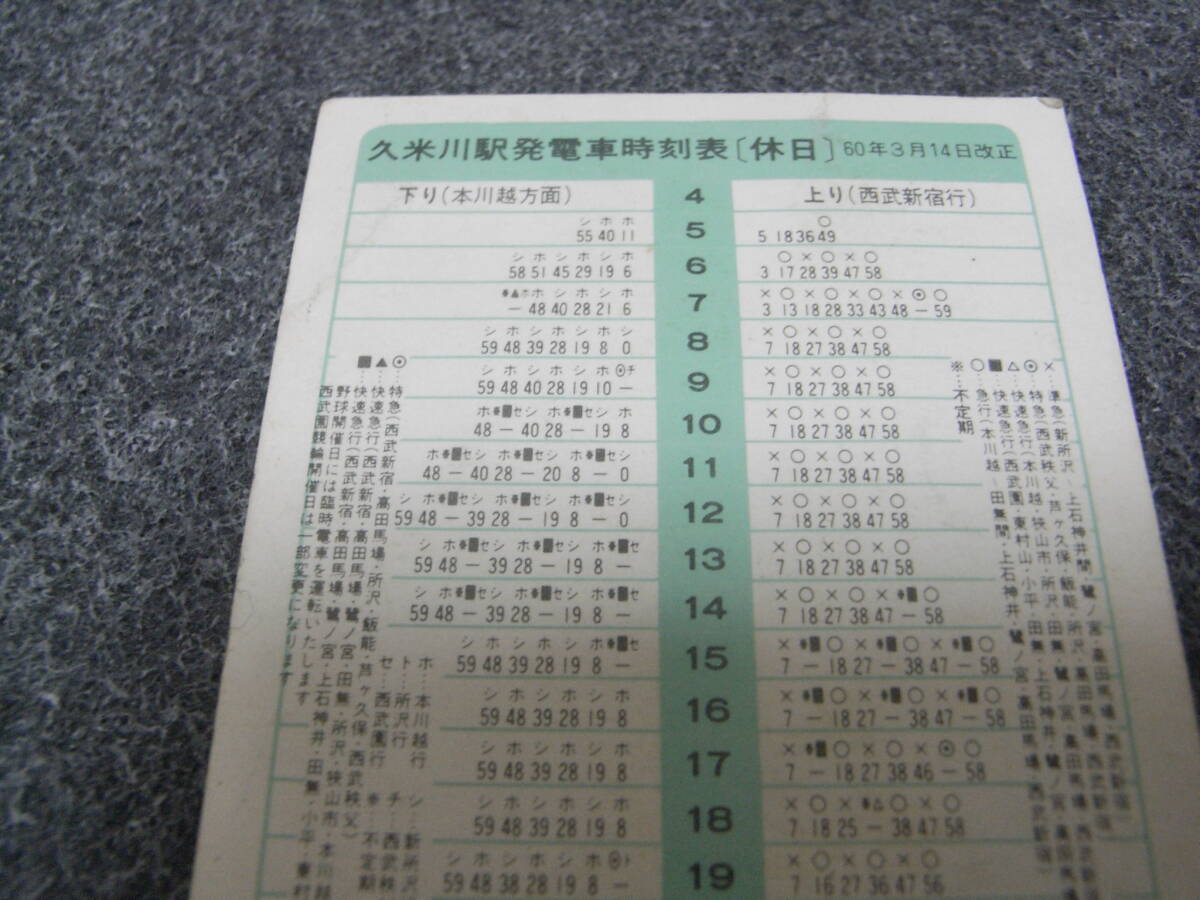 久米川駅発電車時刻表〔休日〕60年3月14日改正
下り(本川越方面) 4 上り(西武新宿行)
シ ホ ホ ○
55 40 11 5 5 18 36 49
シ ホ シ ホ シ ホ ○ × ○ × ○
58 51 45 29 19 6 6 3 17 28 39 47 58
× ○ × ○ × ○ × ◉ ○
― 48 40 28 21 6 7 3 13 18 28 33 43 48 ― 59
シ ホ シ ホ シ ホ シ × ○ × ○ × ○
59 48 39 28 19 8 0 8 7 18 27 38 47 58
シ ホ シ ホ シ ホ ◉チ × ○ × ○ × ○
59 48 40 28 19 10 ― 9 7 18 27 38 47 58
× ○ × ○ × ○
48 ― 40 28 ― 19 8 10 7 18 27 38 47 58
× ○ × ○ × ○
48 ― 40 28 ― 20 8 ― 0 11 7 18 27 38 47 58
× ○ × ○ × ○
59 48 ― 39 28 ― 19 8 ― 0 12 7 18 27 38 47 58
× ○ × ○ × ○
59 48 ― 39 28 ― 19 8 ― 13 7 18 27 38 47 58
59 48 ― 39 28 ― 19 8 ― 14 7 18 27 38 47 ― 58
59 48 39 28 19 8 ― 15 7 ― 18 27 ― 38 47 ― 58
シ ホ シ ホ シ ホ
59 48 39 28 19 8 16 7 ― 18 27 ― 38 47 ― 58
シ ホ シ ホ シ ホ
59 48 39 28 19 8 17 7 ― 18 27 38 46 ― 58
シ ホ シ ホ シ ホ
59 48 39 28 19 8 18 7 18 25 ― 38 47 58
× ○ × ○ × ○
59 48 38 28 19 8 ― 19 7 16 27 36 47 56
◉…特急(西武新宿・高田馬場・所沢・飯能・芦ヶ久保・西武秩父)
▲…快速急行(西武新宿・高田馬場・鷺ノ宮・田無・所沢・狭山市・本川越
■…快速急行(西武新宿・高田馬場・鷺ノ宮・上石神井・田無・小平・東村
野球開催日には臨時電車を運転いたします
西武園競輪開催日は一部変更になります
ホ…本川越行
ト…所沢行
セ…西武園行
シ…新所沢
チ…西武秩
…不定期
×…準急(新所沢―上石神井間・鷺ノ宮・高田馬場・西武新宿)
◉…特急(西武秩父・芦ヶ久保・飯能・所沢・高田馬場・西武新宿)
△…快速急行(本川越・狭山市・所沢・田無・鷺ノ宮・高田馬場・西武新宿
■…快速急行(西武園・東村山・小平・田無・上石神井・鷺ノ宮・高田馬
○…急行(本川越―田無間・上石神井・鷺ノ宮・高田馬場・西武新宿)
※…不定期